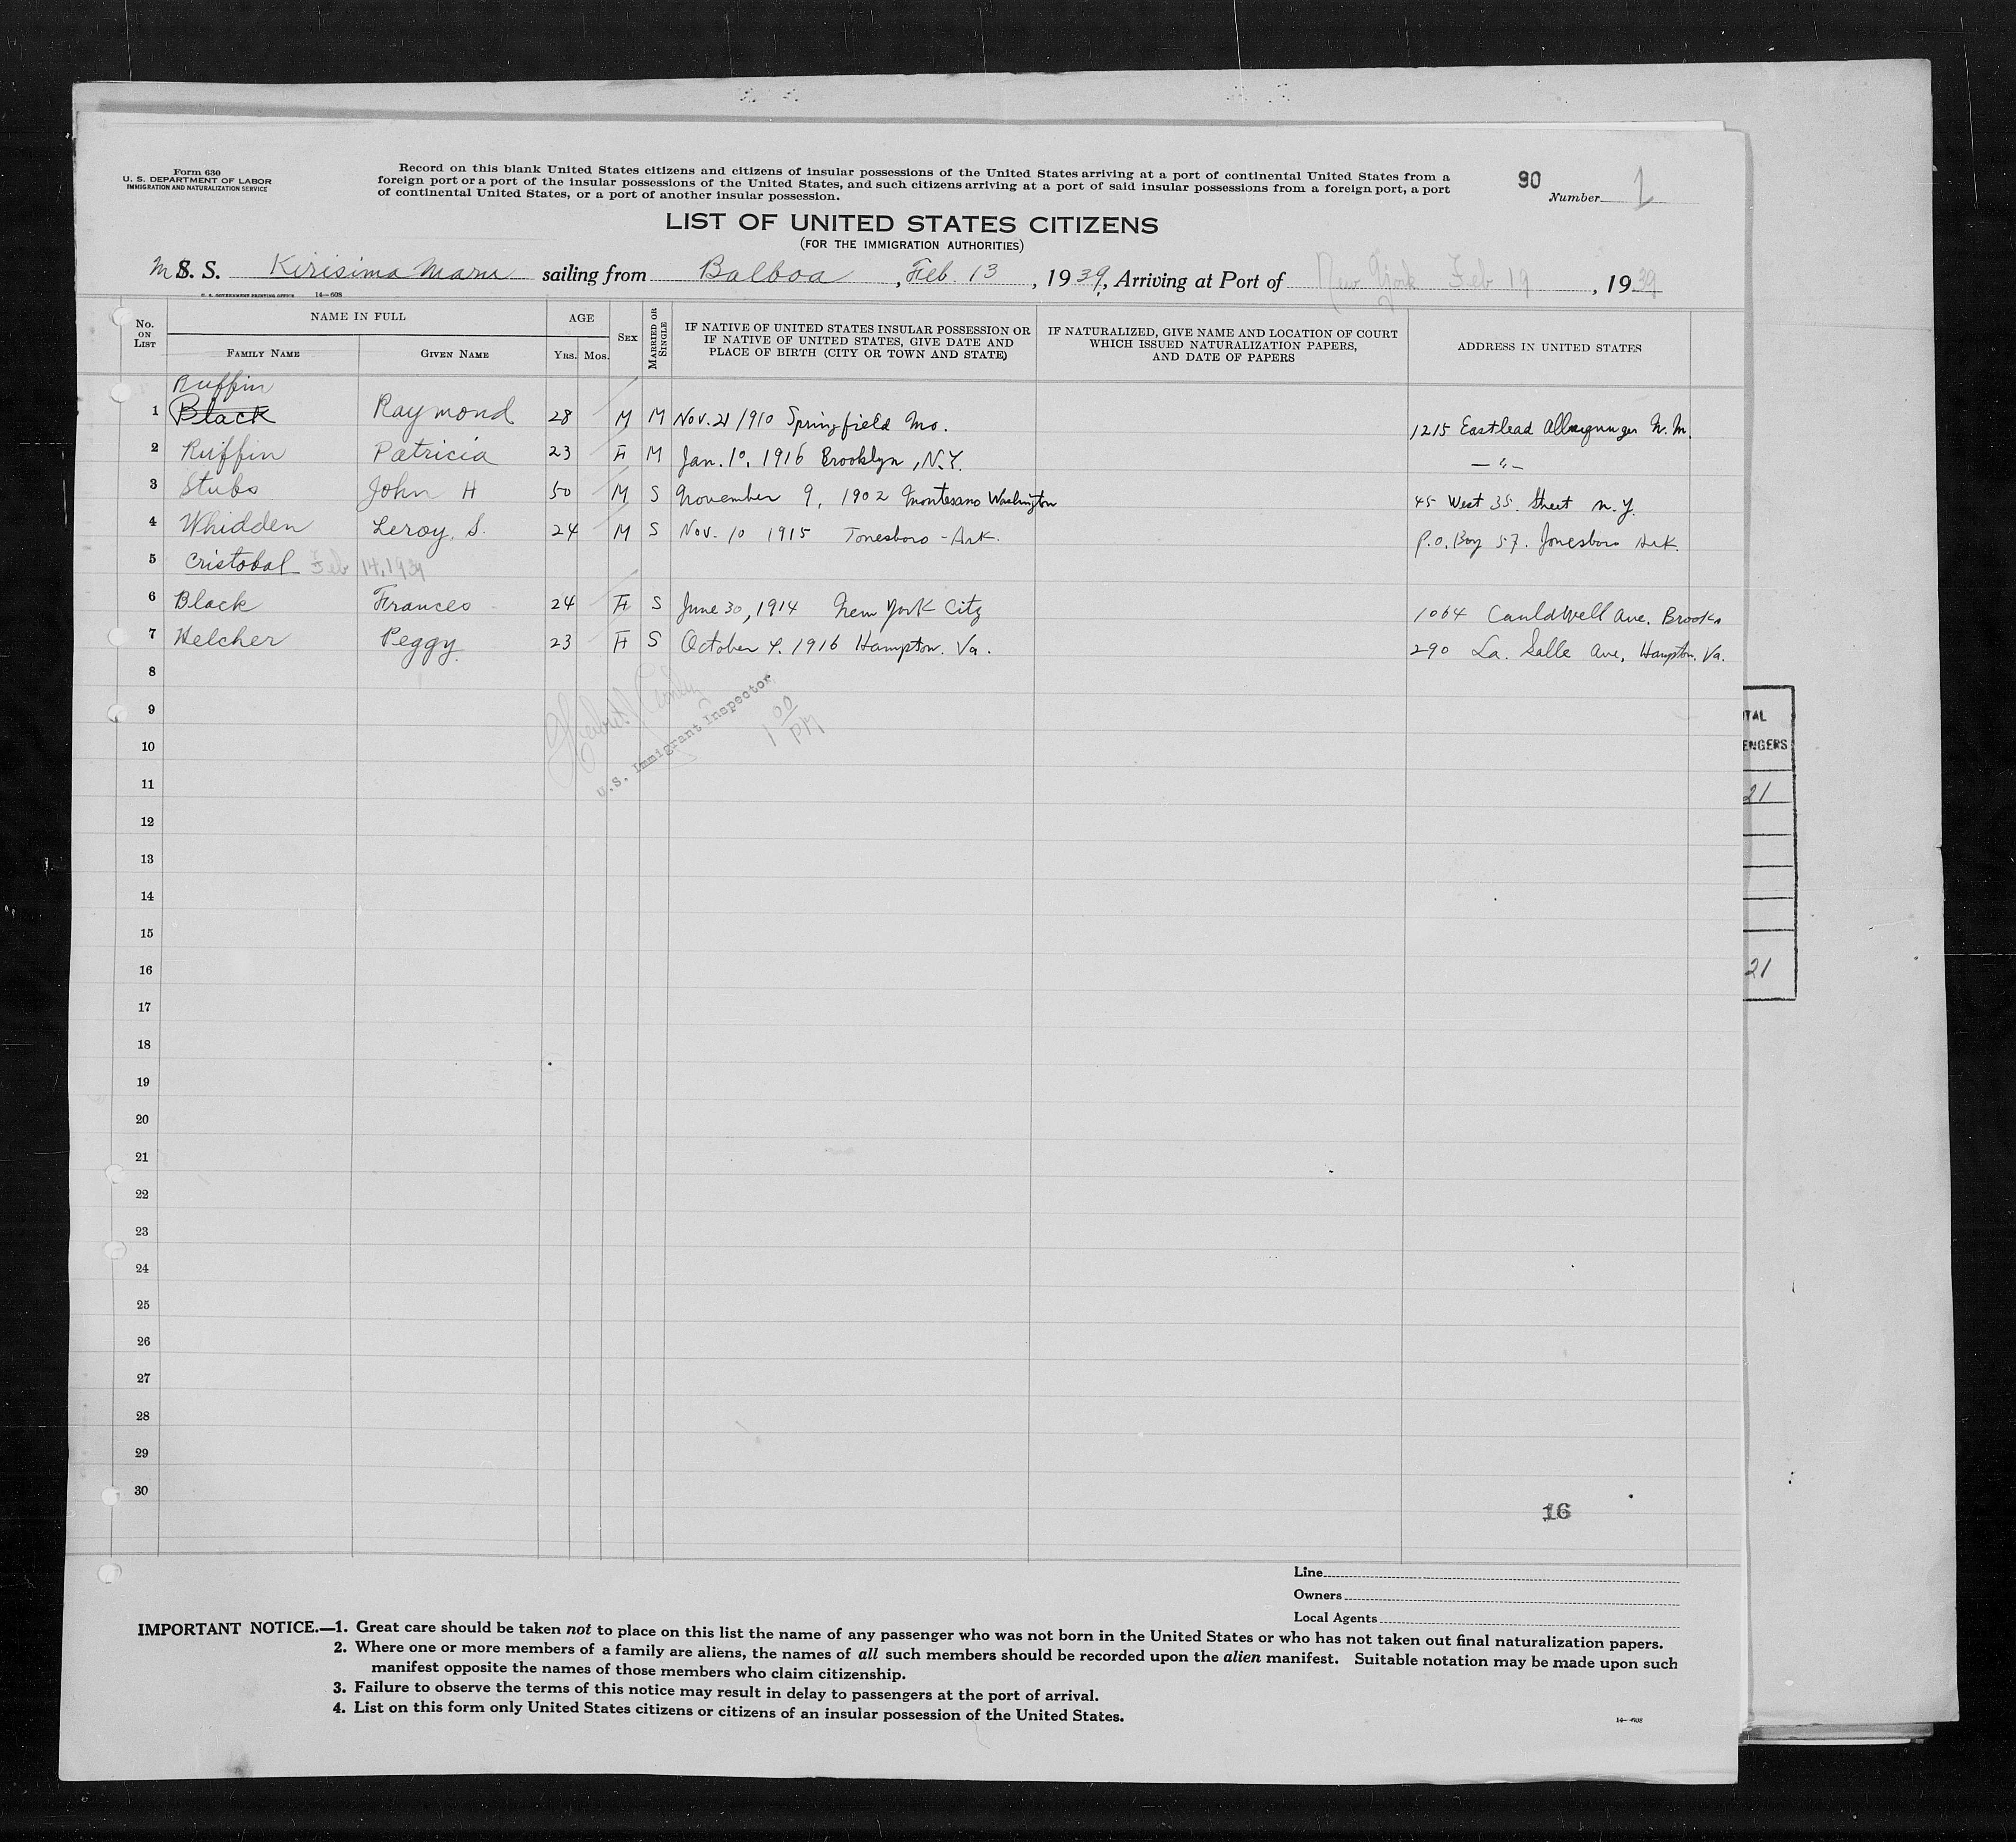 Form 630
U. S. DEPARTMENT OF LABOR
IMMIGRATION AND NATURALIZATION SERVICE
Record on this blank United States citizens and citizens of insular possessions of the United States arriving at a port of continental United States from a
foreign port or a port of the insular possessions of the United States, and such citizens arriving at a port of said insular possessions from a foreign port, a port
of continental United States, or a port of another insular possession.
90
Number 1
LIST OF UNITED STATES CITIZENS
(FOR THE IMMIGRATION AUTHORITIES)
M S. S. Kirisima Maru sailing from Balboa, Feb. 13, 1939, Arriving at Port of New York Feb 19, 1939
U. S. GOVERNMENT PRINTING OFFICE 14—608
No. ON LIST
NAME IN FULL
FAMILY NAME GIVEN NAME
AGE
YRS. MOS.
SEX
MARRIED OR SINGLE
IF NATIVE OF UNITED STATES INSULAR POSSESSION OR
IF NATIVE OF UNITED STATES, GIVE DATE AND
PLACE OF BIRTH (CITY OR TOWN AND STATE)
IF NATURALIZED, GIVE NAME AND LOCATION OF COURT
WHICH ISSUED NATURALIZATION PAPERS,
AND DATE OF PAPERS
ADDRESS IN UNITED STATES
Ruffin
1 Black Raymond 28 M M Nov. 21 1910 Springfield Mo. 1215 Eastlead N. M.
2 Ruffin Patricia 23 F M Jan. 10, 1916 Brooklyn, N.Y. — " —
3 Stubs John H 50 M S November 9, 1902 Montesano Washington 45 West 35. Street N. Y.
4 Whidden Leroy. S. 24 M S Nov. 10 1915 Jonesboro - Ark. P.O. Box 57. Jonesboro Ark.
5 Cristobal Feb 14, 1939
6 Black Frances 24 F S June 30, 1914 New York City 1064 Cauldwell Ave. Brook
7 Helcher Peggy 23 F S October 4, 1916 Hampton. Va. 290 La. Salle Ave, Hampton, Va.
8
U.S. Immigrant Inspector
1 00 PM
9
10
11
12
13
14
15
16
17
18
19
20
21
22
23
24
25
26
27
28
29
30
TAL
ENGERS
21
21
16
Line
Owners
Local Agents
IMPORTANT NOTICE.—1. Great care should be taken not to place on this list the name of any passenger who was not born in the United States or who has not taken out final naturalization papers.
2. Where one or more members of a family are aliens, the names of all such members should be recorded upon the alien manifest. Suitable notation may be made upon such
manifest opposite the names of those members who claim citizenship.
3. Failure to observe the terms of this notice may result in delay to passengers at the port of arrival.
4. List on this form only United States citizens or citizens of an insular possession of the United States.
14—608